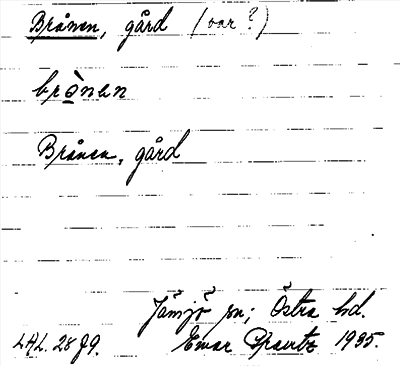 Brånen, gård (var?)
brò̲nen
Brånen, gård
Jämjö sn; Östra hd.
LAL. 2899. Einar 1935.